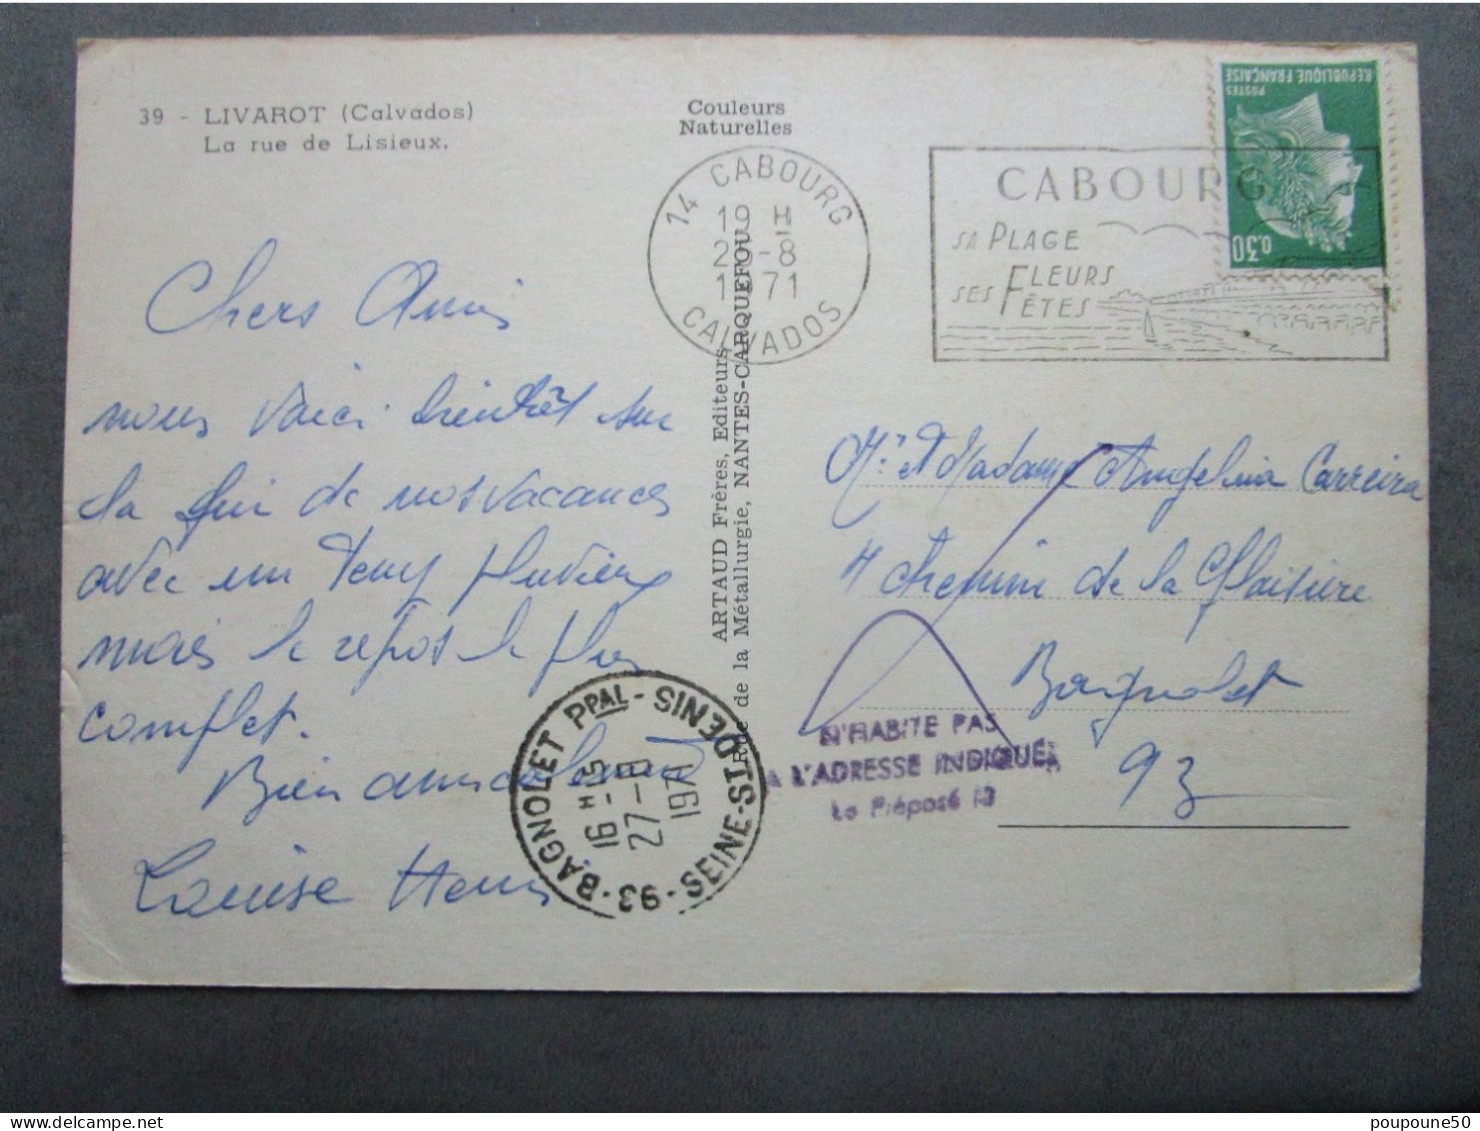 39 - LIVAROT (Calvados)
La rue de Lisieux.
Couleurs
Naturelles
14 CABOURG
19 H
-8
1971
CALVADOS
CABOURG
SA PLAGE
SES FLEURS
FÊTES
POSTES
REPUBLIQUE FRANÇAISE
0,30
Chers Amis
nous voici bientôt sur
la fin de nos vacances
avec un temp pluvieux
mais le repos le plus
complet.
Bien amicalement
Louise Henri
ARTAUD Frères, Editeurs
Rue de la Métallurgie, NANTES-CARQUEFOU
Mr et Madame Angelina Carreira
4 chemin de la
Bagnolet
93
N'HABITE PAS
A L'ADRESSE INDIQUÉE
Le Préposé 13
93 - BAGNOLET PPAL - SEINE-ST-DENIS
16 H -15
27-8
1971
poupoune50